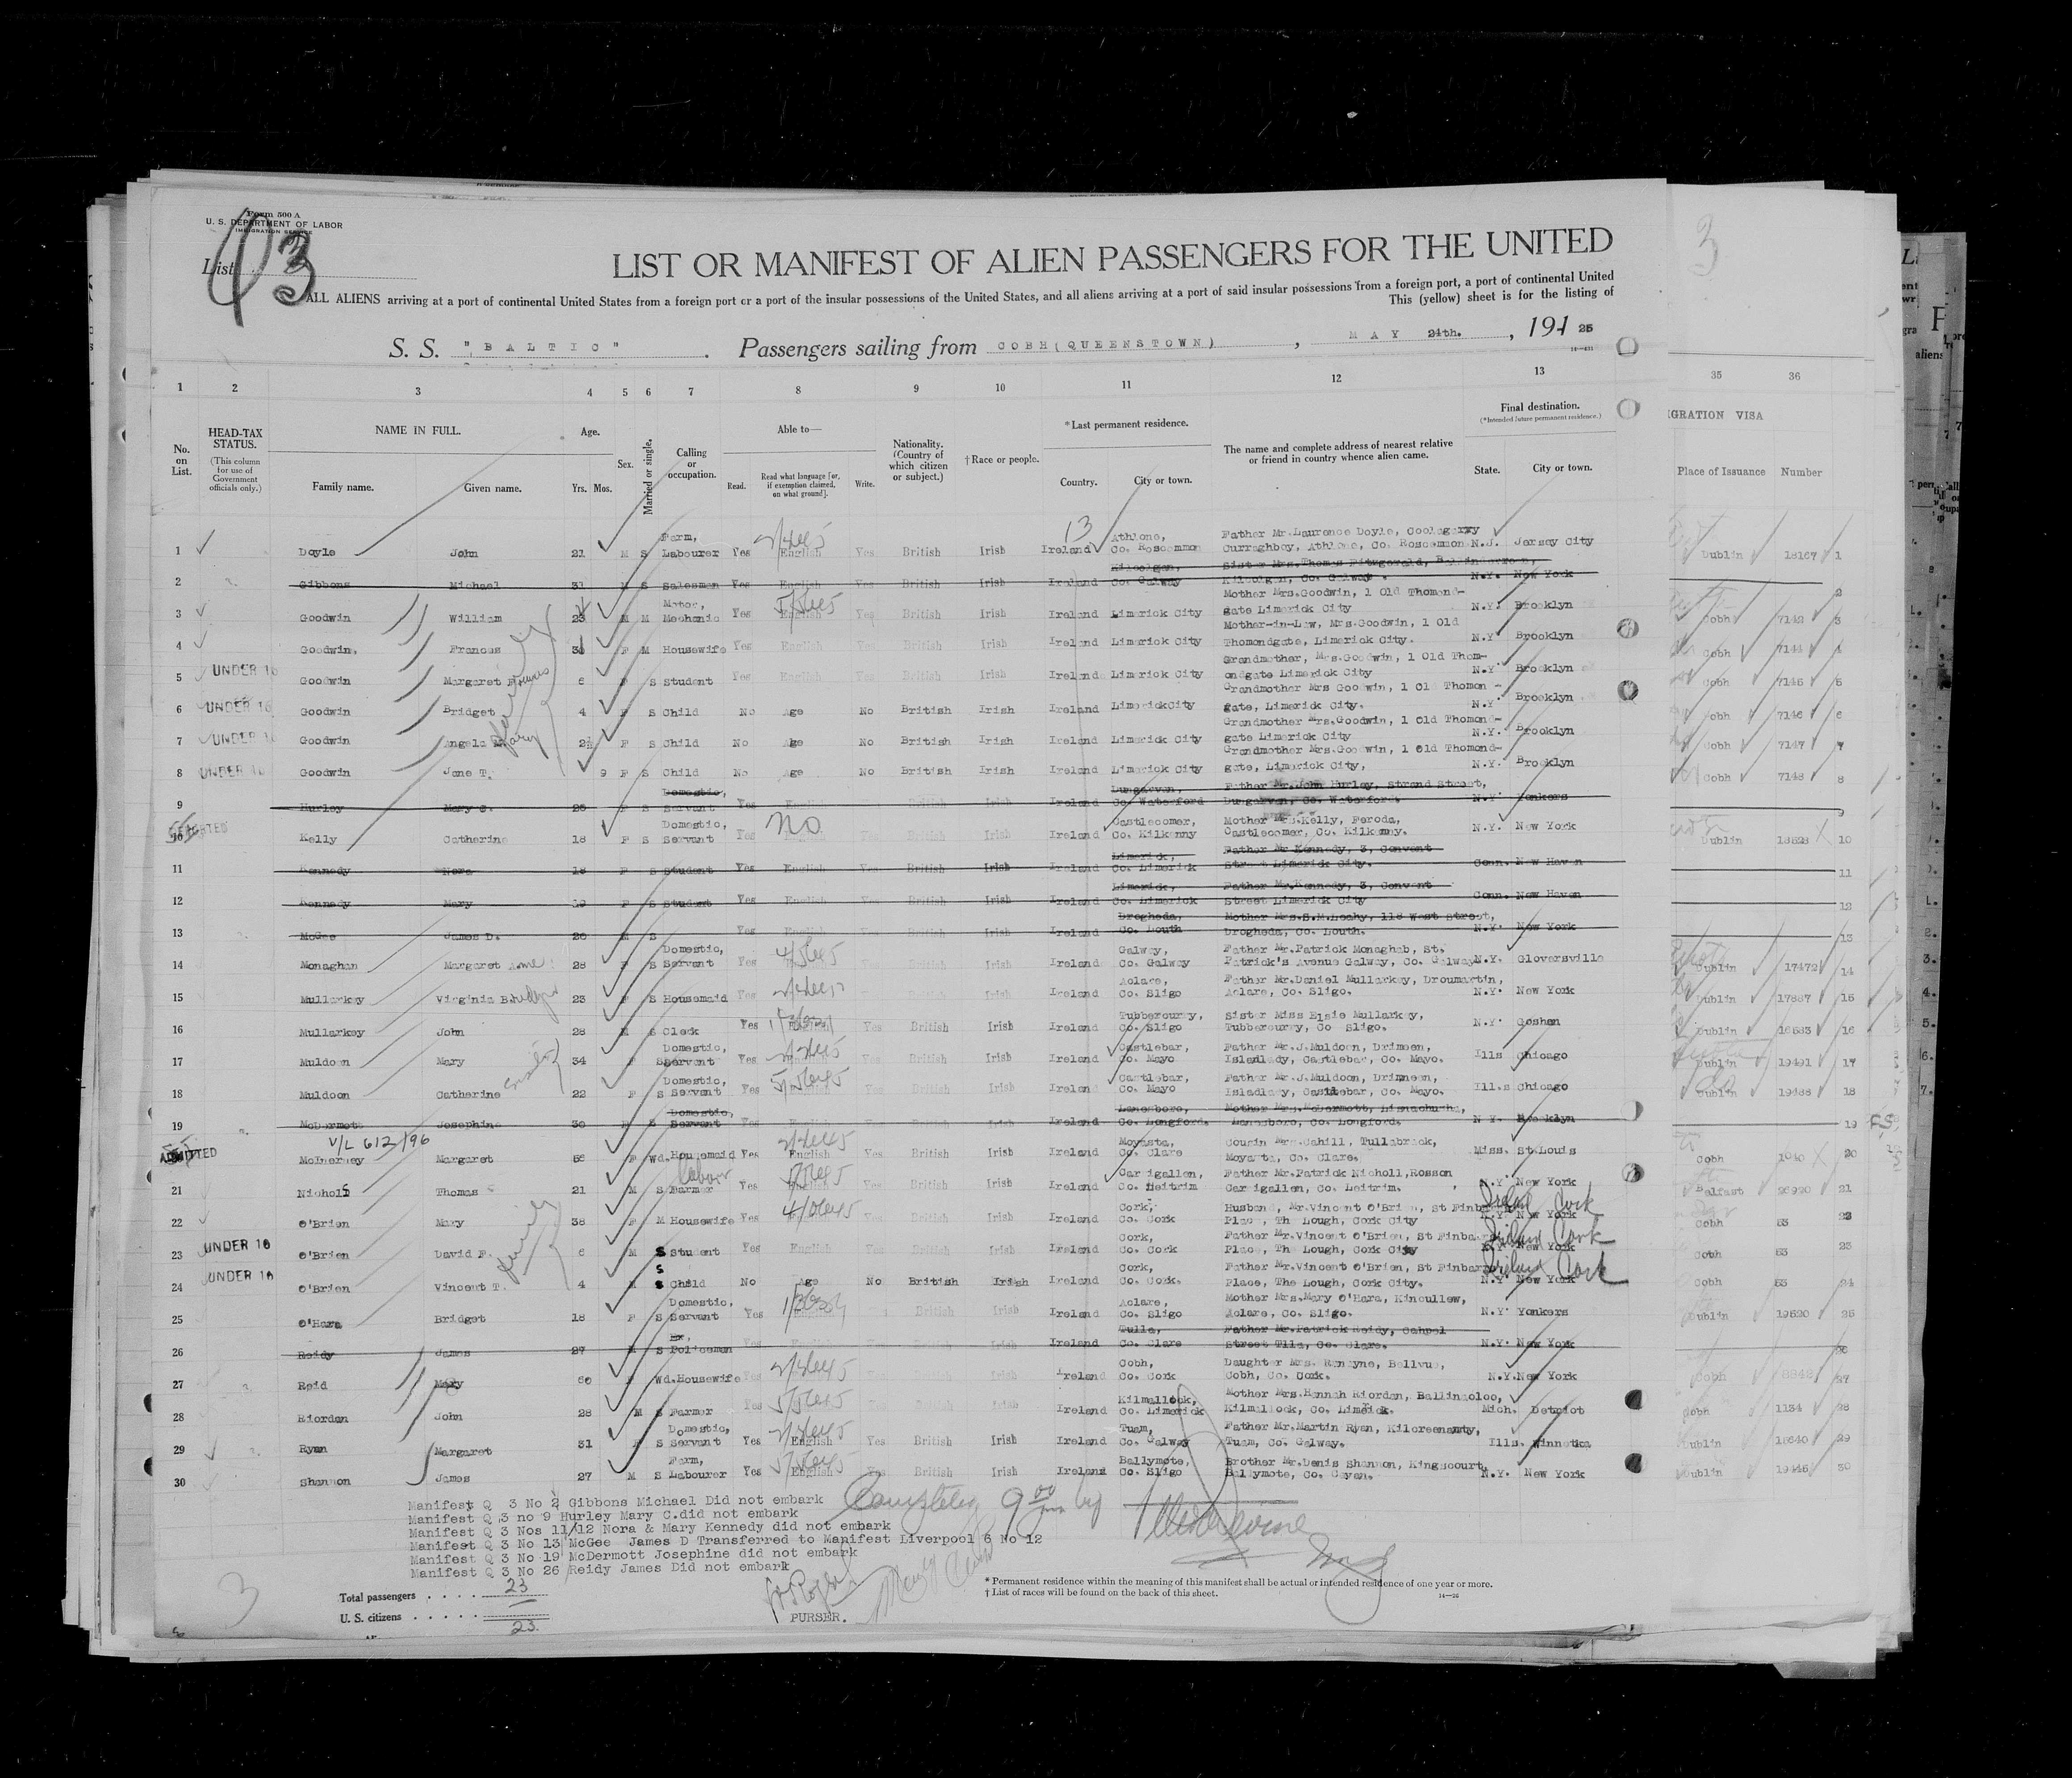 Form 500 A
U. S. DEPARTMENT OF LABOR
IMMIGRATION SERVICE
List 3
LIST OR MANIFEST OF ALIEN PASSENGERS FOR THE UNITED
ALL ALIENS arriving at a port of continental United States from a foreign port or a port of the insular possessions of the United States, and all aliens arriving at a port of said insular possessions from a foreign port, a port of continental United
This (yellow) sheet is for the listing of
S. S. "BALTIC" Passengers sailing from COBH(QUEENSTOWN), MAY 24th., 191 25
1 2 3 4 5 6 7 8 9 10 11 12 13 35 36
No. on List.
HEAD-TAX STATUS. (This column for use of Government officials only.)
NAME IN FULL. Family name. Given name.
Age. Yrs. Mos.
Sex.
Married or single.
Calling or occupation.
Able to— Read. Read what language [or, if exemption claimed, on what ground]. Write.
Nationality. (Country of which citizen or subject.)
† Race or people.
*Last permanent residence. Country. City or town.
The name and complete address of nearest relative or friend in country whence alien came.
Final destination. (*Intended future permanent residence.) State. City or town.
GRATION VISA
Place of Issuance Number
1 Doyle John 21 M S Farm, Labourer Yes English Yes British Irish Ireland Athlone, Co. Roscommon Father Mr.Laurence Doyle, Curraghboy, Athlone, Co. Roscommon N.J. Jersey City Dublin 18167 1
2 Gibbons Michael 31 M S Salesman Yes English Yes British Irish Ireland Kilcolgan, Co. Galway Sister Mrs.Thomas Fitzgerald, Kilcolgan, Co. Galway. N.Y. New York 2
3 Goodwin William M M Motor, Mechanic Yes English Yes British Irish Ireland Limerick City Mother Mrs.Goodwin, 1 Old Thomond-gate Limerick City N.Y. Brooklyn Cobh 7142 3
4 Goodwin. Frances F M Housewife Yes English Yes British Irish Ireland Limerick City Mother-in-Law, Mrs.Goodwin, 1 Old Thomondgate, Limerick City. N.Y. Brooklyn Cobh 7144 4
5 UNDER 16 Goodwin Margaret F. 6 F S Student Yes English Yes British Irish Ireland Limerick City Grandmother, Mrs.Goodwin, 1 Old Thom-ondgate Limerick City N.Y. Brooklyn Cobh 7145 5
6 UNDER 16 Goodwin Bridget 4 F S Child No Age No British Irish Ireland LimerickCity Grandmother Mrs Goodwin, 1 Old Thomon-gate, Limerick City. N.Y. Brooklyn Cobh 7146 6
7 UNDER 16 Goodwin Angela 2½ F S Child No Age No British Irish Ireland Limerick City Grandmother Mrs.Goodwin, 1 Old Thomond-gate Limerick City N.Y. Brooklyn Cobh 7147 7
8 UNDER 16 Goodwin Jane T. 9 F S Child No Age No British Irish Ireland Limerick City Grandmother Mrs.Goodwin, 1 Old Thomond-gate, Limerick City, N.Y. Brooklyn Cobh 7148 8
9 Hurley Mary C. 26 F S Domestic, Servant Yes English Yes British Irish Ireland Dungarven, Co Waterford Father Mr.John Hurley, Strand Street, Dungarven, Co. Waterford. N.Y. Yonkers 9
10 Kelly Catherine 18 F S Domestic, Servant Yes No Yes British Irish Ireland Castlecomer, Co. Kilkenny Mother Mrs.Kelly, Feroda, Castlecomer, Co. Kilkenny. N.Y. New York Dublin 18528 10
11 Kennedy Nora 18 F S Student Yes English Yes British Irish Ireland Limerick, Co. Limerick Father Mr Kennedy, 3, Convent Street Limerick City. Conn. New Haven 11
12 Kennedy Mary 19 F S Student Yes English Yes British Irish Ireland Limerick, Co. Limerick Father Mr.Kennedy, 3, Convent Street Limerick City Conn. New Haven 12
13 McGee James D. 26 M S Yes English Yes British Irish Ireland Drogheda, Co. Louth Mother Mrs.S.M.Leahy, 118 West Street, Drogheda, Co. Louth. N.Y. New York 13
14 Monaghan Margaret Anne 28 F S Domestic, Servant Yes English Yes British Irish Ireland Galway, Co. Galway Father Mr.Patrick Monaghab, St. Patrick's Avenue Galway, Co. Galway N.Y. Gloversville Dublin 17472 14
15 Mullarkey Virginia Bridget 23 F S Housemaid Yes British Irish Ireland Aclare, Co. Sligo Father Mr.Daniel Mullarkey, Droumartin, Aclare, Co. Sligo. N.Y. New York Dublin 17887 15
16 Mullarkey John 28 M S Clerk Yes English Yes British Irish Ireland Tubbercurry, Co. Sligo Sister Miss Elsie Mullarkey, Tubbercurry, Co Sligo. N.Y. Goshen Dublin 18583 16
17 Muldoon Mary 34 F S Domestic, Servant Yes English Yes British Irish Ireland Castlebar, Co. Mayo Father Mr.J.Muldoon, Drimeen, Islandlady, Castlebar, Co. Mayo. Ills Chicago Dublin 19491 17
18 Muldoon Catherine 22 F S Domestic, Servant Yes English Yes British Irish Ireland Castlebar, Co. Mayo Father Mr.J.Muldoon, Drimneen, Isladlady, Castlebar, Co. Mayo. Ill.s Chicago Dublin 19488 18
19 McDermott Josephine 30 F S Domestic, Servant Yes English Yes British Irish Ireland Lanesboro, Co. Longford. Mother Mrs.McDermott, Lanesboro, Co. Longford. N Y. Brooklyn 19
V/L 612/96
20 ADMITTED McInerney Margaret 56 F Wd. Housemaid Yes English Yes British Irish Ireland Moyasta, Co. Clare Cousin Mrs.Cahill, Tullabrick, Moyasta, Co. Clare. Miss. St.Louis Cobh 1040 20
21 Nicholl Thomas 21 M S Farmer Labour Yes English Yes British Irish Ireland Carrigallen, Co. Leitrim Father Mr.Patrick Nicholl,Rosson Carrigallen, Co. Leitrim. N.Y New York Belfast 26920 21
22 O'Brien Mary 38 F M Housewife Yes Yes British Irish Ireland Cork, Co. Cork Husband, Mr.Vincent O'Brien, St Finbar Place, Th Lough, Cork City N.Y. New York Ireland Cork Cobh 53 22
23 UNDER 16 O'Brien David F. 6 M S Student Yes English Yes British Irish Ireland Cork, Co. Cork Father Mr.Vincent O'Brien, St Finbar Place, The Lough, Cork City N.Y New York Ireland Cork Cobh 53 23
24 UNDER 16 O'Brien Vincent T. 4 M S Child No Age No British Irish Ireland Cork, Co. Cork. Father Mr.Vincent O'Brien, St Finbar Place, The Lough, Cork City. N.Y. New York Ireland Cork Cobh 53 24
25 O'Hara Bridget 18 F S Domestic, Servant Yes English British Irish Ireland Aclare, Co. Sligo Mother Mrs.Mary O'Hara, Kincullew, Aclare, Co. Sligo. N.Y. Yonkers Dublin 19520 25
26 Reidy James 27 M S Ex, Policeman Yes English Yes British Irish Ireland Tulla, Co. Clare Father Mr.Patrick Reidy, Cahpel Street Tlla, Co. Clare. N.Y. New York 26
27 Reid Mary 60 F Wd. Housewife Yes English Yes British Irish Ireland Cobh, Co. Cork Daughter Mrs. Ronayne, Bellvue, Cobh, Co. Cork. N.Y. New York Cobh 27
28 Riordan John 28 M S Farmer Yes English Yes British Irish Ireland Kilmallock, Co. Limerick Mother Mrs.Hannah Riordan, Ballincoloo, Kilmallock, Co. Limerick. Mich. Detriot Cobh 1134 28
29 Ryan Margaret 31 F S Domestic, Servant Yes English Yes British Irish Ireland Tuam, Co. Galway Father Mr.Martin Ryan, Kilcreenanty, Tuam, Co. Galway. Ills. Winnetka Dublin 18640 29
30 Shannon James 27 M S Farm, Labourer Yes English Yes British Irish Ireland Ballymote, Co. Sligo Brother Mr.Denis Shannon, Kingscourt, Ballymote, Co. Cavan. N.Y. New York Dublin 19445 30
Manifest Q 3 No 2 Gibbons Michael Did not embark
Manifest Q 3 no 9 Hurley Mary C.did not embark
Manifest Q 3 Nos 11/12 Nora & Mary Kennedy did not embark
Manifest Q 3 No 13 McGee James D Transferred to Manifest Liverpool 6 No 12
Manifest Q 3 No 19 McDermott Josephine did not embark
Manifest Q 3 No 26 Reidy James Did not embark
Total passengers . . . . 23
U. S. citizens . . . . .
23
PURSER.
* Permanent residence within the meaning of this manifest shall be actual or intended residence of one year or more.
† List of races will be found on the back of this sheet.
3